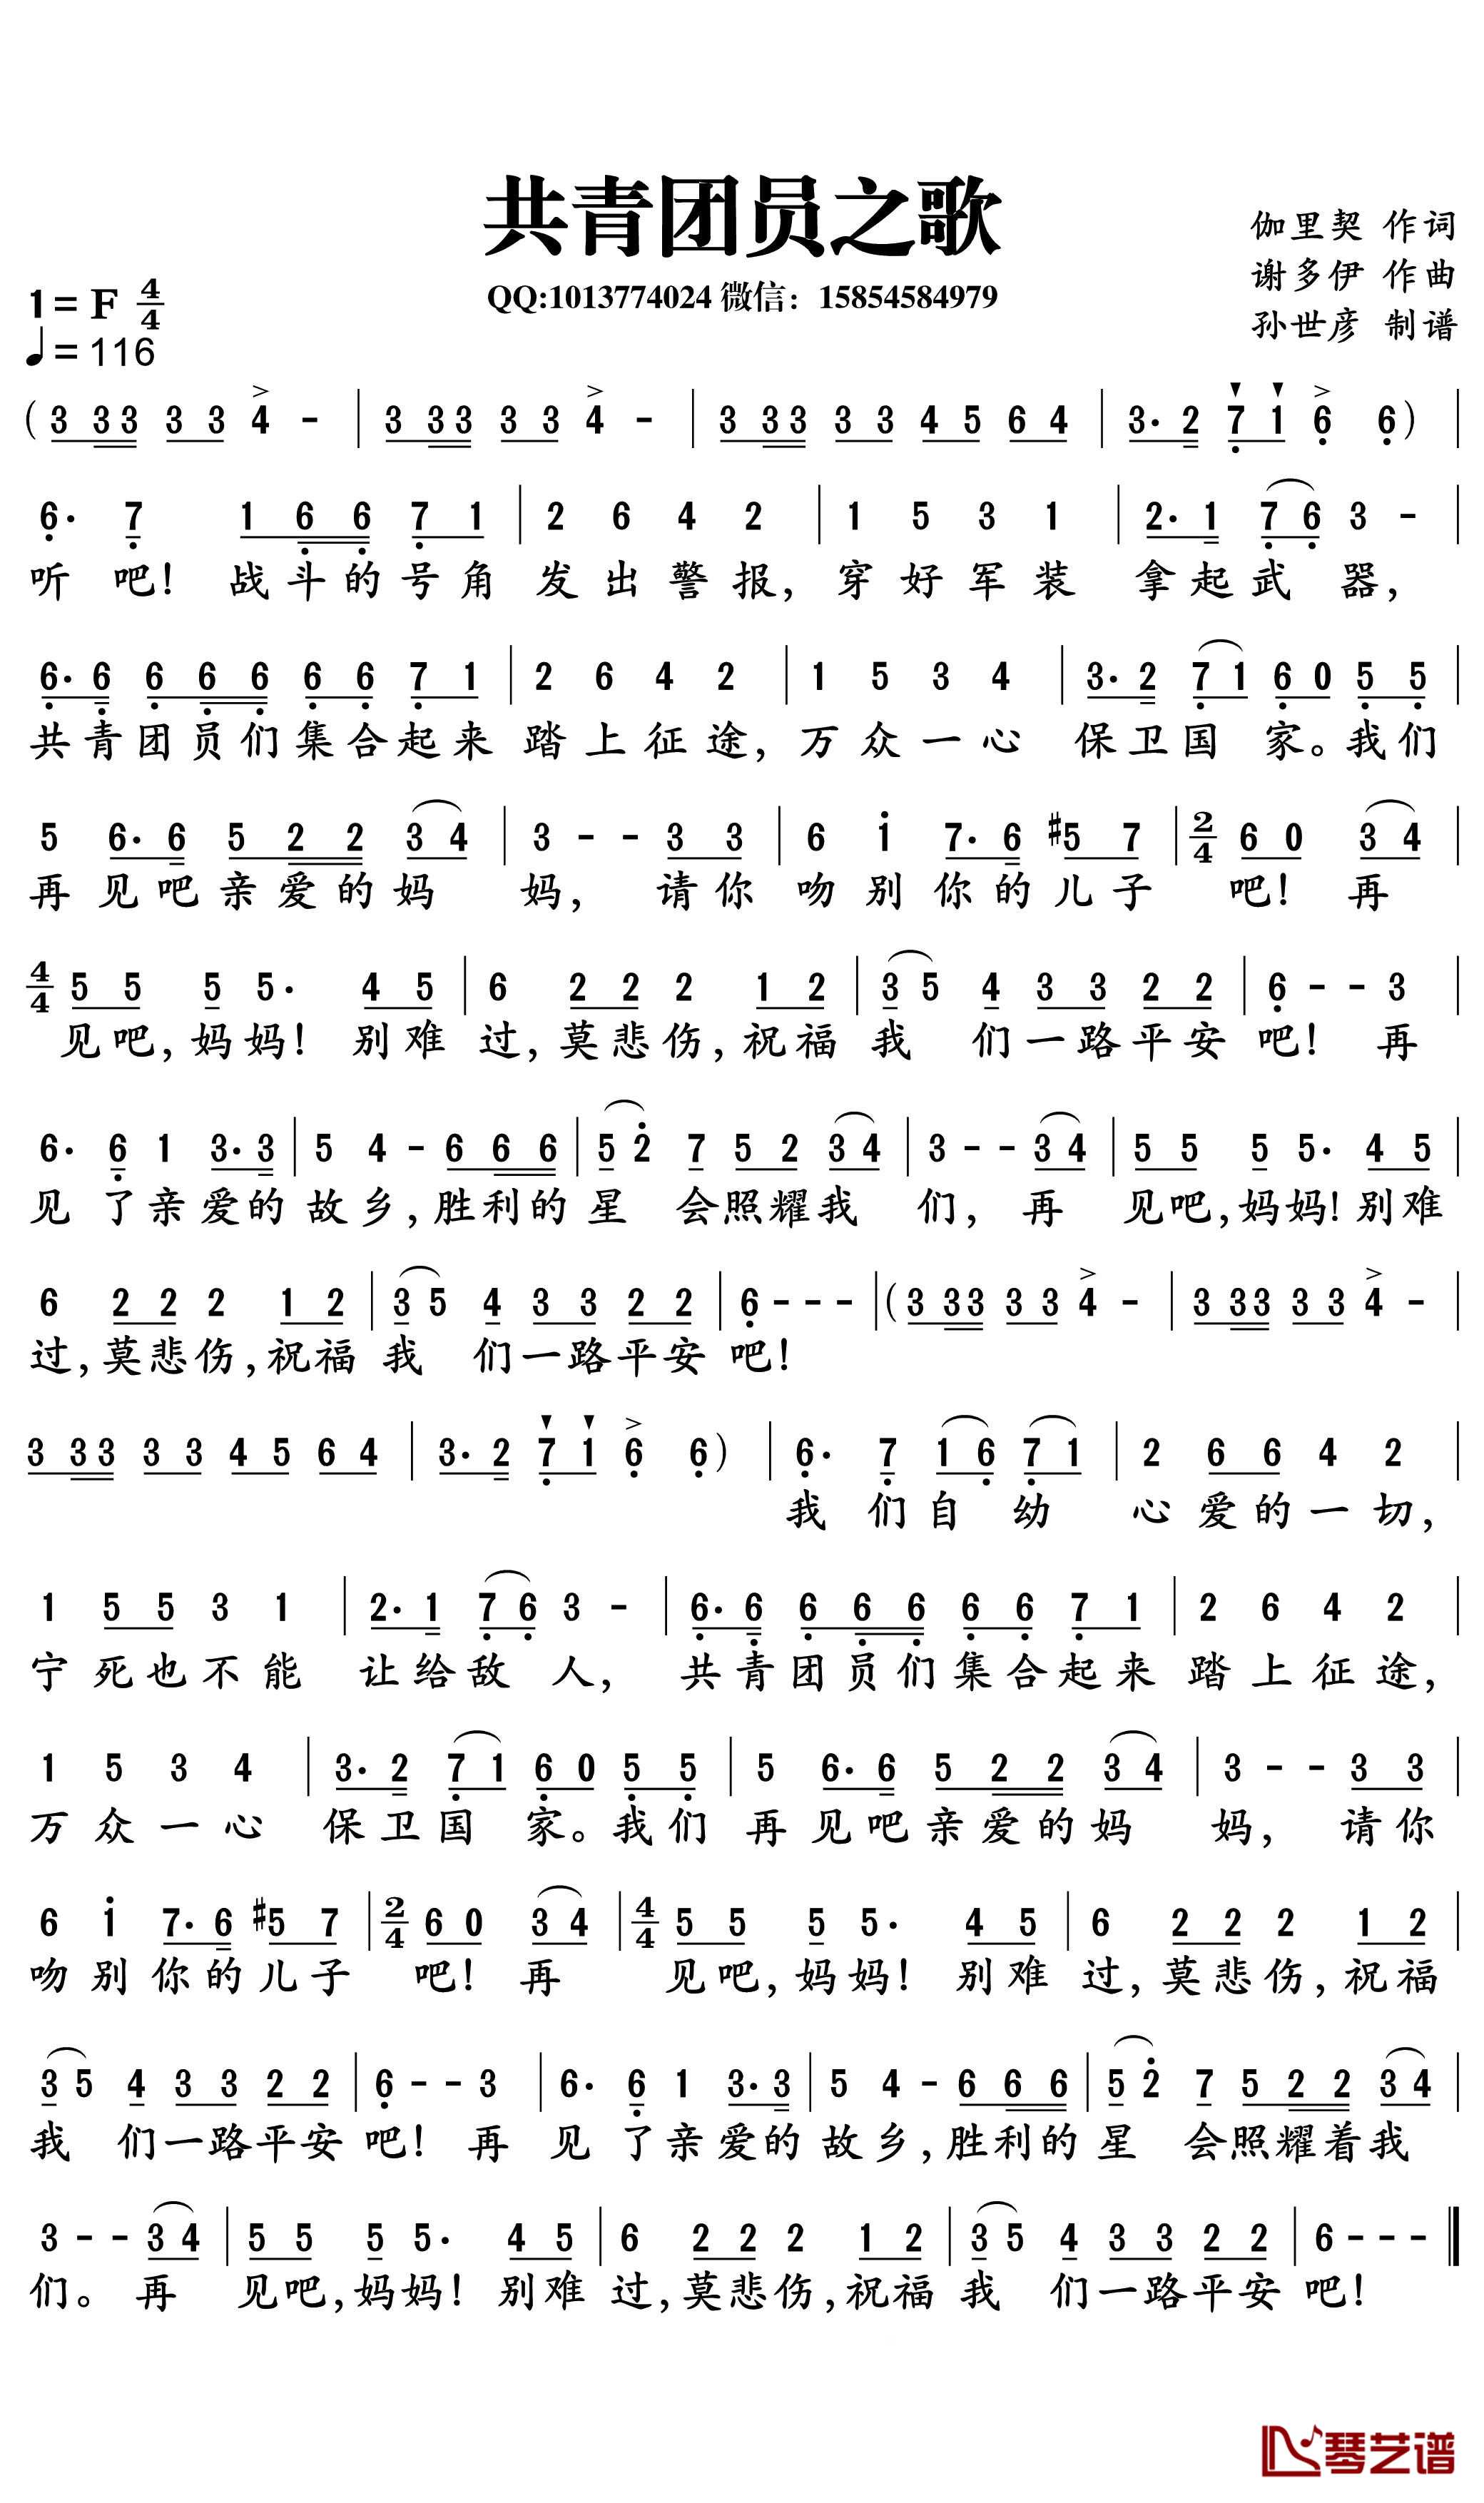 共青团员之歌
伽里契 作词
谢多伊 作曲
孙世彦 制谱
QQ:1013774024 微信：15854584979
1=F 4/4
♩=116
(3 33 3 3 4 - | 3 33 3 3 4 - | 3 33 3 3 4 5 6 4 | 3. 2 7 1 6 6) |
6. 7 1 6 6 7 1 | 2 6 4 2 | 1 5 3 1 | 2. 1 7 6 3 - |
听 吧！战斗的号角 发出警报，穿好军装 拿起武 器，
6. 6 6 6 6 6 6 7 1 | 2 6 4 2 | 1 5 3 4 | 3. 2 7 1 6 0 5 5 |
共青团员们集合起来 踏上征途，万众一心 保卫国 家。我们
5 6. 6 5 2 2 3 4 | 3 - - 3 3 | 6 i 7. 6 #5 7 | 2/4 6 0 3 4 |
再见吧亲爱的妈 妈，请你 吻别你的儿子 吧！再
4/4 5 5 5 5. 4 5 | 6 2 2 2 1 2 | 3 5 4 3 3 2 2 | 6 - - 3 |
见吧，妈妈！别难 过，莫悲伤，祝福 我 们一路平安 吧！再
6. 6 1 3. 3 | 5 4 - 6 6 6 | 5 2 7 5 2 3 4 | 3 - - 3 4 | 5 5 5 5. 4 5 |
见 了亲爱的 故乡，胜利的 星 会照耀我 们，再 见吧，妈妈！别难
6 2 2 2 1 2 | 3 5 4 3 3 2 2 | 6 - - - | (3 33 3 3 4 - | 3 33 3 3 4 - |
过，莫悲伤，祝福 我 们一路平安 吧！
3 33 3 3 4 5 6 4 | 3. 2 7 1 6 6) | 6. 7 1 6 7 1 | 2 6 6 4 2 |
我 们自 幼 心爱的一切，
1 5 5 3 1 | 2. 1 7 6 3 - | 6. 6 6 6 6 6 6 7 1 | 2 6 4 2 |
宁死也不能 让给敌 人，共青团员们集合起来 踏上征途，
1 5 3 4 | 3. 2 7 1 6 0 5 5 | 5 6. 6 5 2 2 3 4 | 3 - - 3 3 |
万众一心 保卫国 家。我们 再见吧亲爱的妈 妈，请你
6 i 7. 6 #5 7 | 2/4 6 0 3 4 | 4/4 5 5 5 5. 4 5 | 6 2 2 2 1 2 |
吻别你的儿子 吧！再 见吧，妈妈！别难 过，莫悲伤，祝福
3 5 4 3 3 2 2 | 6 - - 3 | 6. 6 1 3. 3 | 5 4 - 6 6 6 | 5 2 7 5 2 2 3 4 |
我 们一路平安 吧！再 见 了亲爱的 故乡，胜利的 星 会照耀着我
3 - - 3 4 | 5 5 5 5. 4 5 | 6 2 2 2 1 2 | 3 5 4 3 3 2 2 | 6 - - - ‖
们。再 见吧，妈妈！别难 过，莫悲伤，祝福 我 们一路平安 吧！
琴艺谱